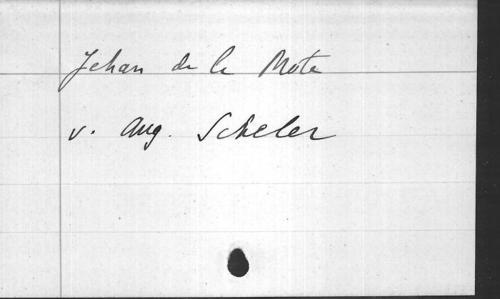 Jehan de le Mote
v. Aug. Scheler